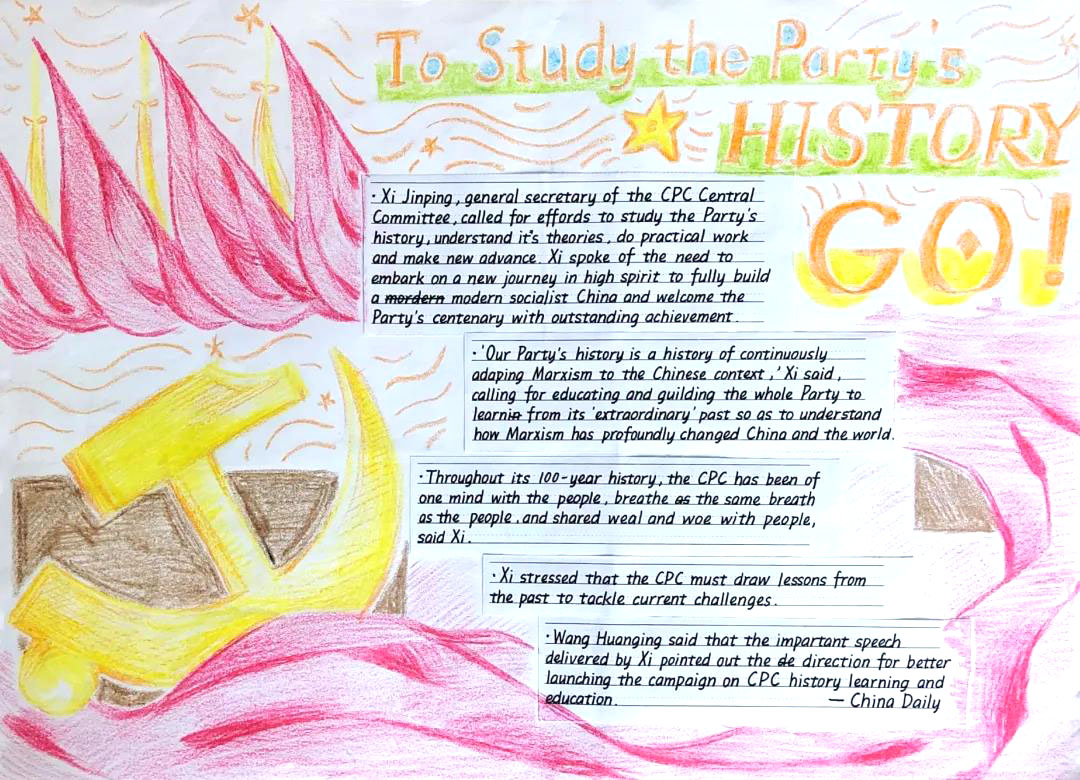 To Study the Party's
HISTORY
GO!
· Xi Jinping, general secretary of the CPC Central
Committee, called for effords to study the Party's
history, understand it's theories, do practical work
and make new advance. Xi spoke of the need to
embark on a new journey in high spirit to fully build
a mordern modern socialist China and welcome the
Party's centenary with outstanding achievement.
· 'Our Party's history is a history of continuously
adaping Marxism to the Chinese context,' Xi said,
calling for educating and guilding the whole Party to
learnin from its 'extraordinary' past so as to understand
how Marxism has profoundly changed China and the world.
· Throughout its 100-year history, the CPC has been of
one mind with the people, breathe as the same breath
as the people, and shared weal and woe with people,
said Xi.
· Xi stressed that the CPC must draw lessons from
the past to tackle current challenges.
· Wang Huanging said that the important speech
delivered by Xi pointed out the de direction for better
launching the campaign on CPC history learning and
education. — China Daily